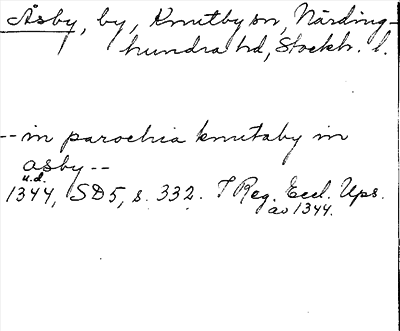 Åsby, by, Knutby sn, Närding-
hundra hd, Stockh. l.
--in parochia knutaby in
asby--
u.d.
1344, SD5, s. 332. T Reg. Eccl. Ups.
av 1344.